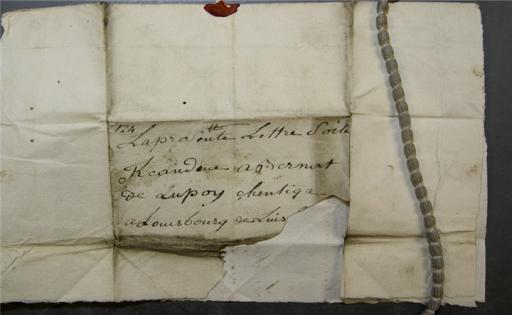 124
Laprasente Lettre Soile
Rcandeue adernat
de Lupoy chentiga
a Louisbourg de Luis